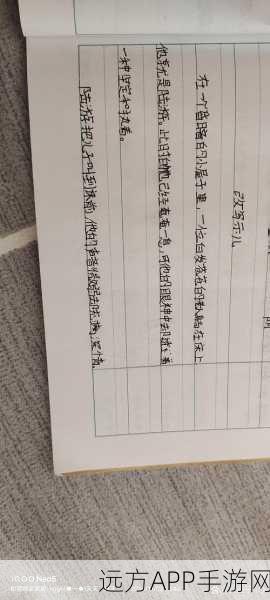 改写示儿
在一个昏暗的小屋子里，一位白发苍苍的老人躺在床上
他就是陆游。此时的他已经奄奄一息，可他的眼神中却透着
一种坚定和执着。
陆游把儿子叫到床前，他的声音微弱却充满深情。
iQOO Neo5
远方APP手游网